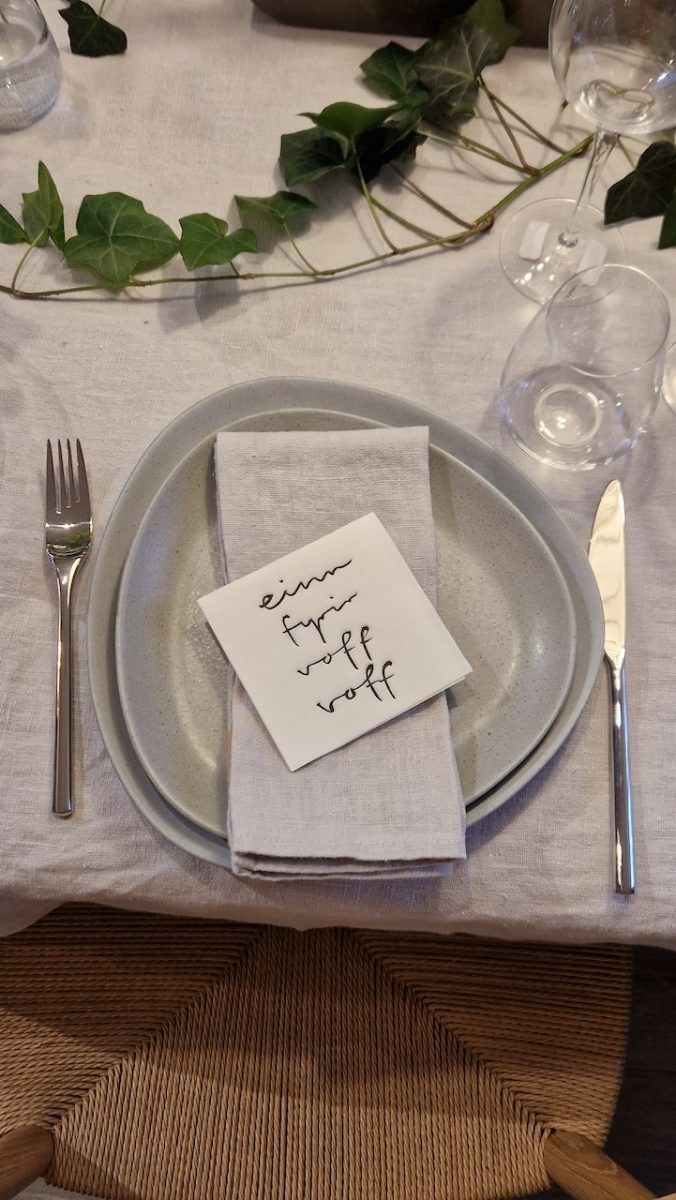 einn
fyrir
voff
voff